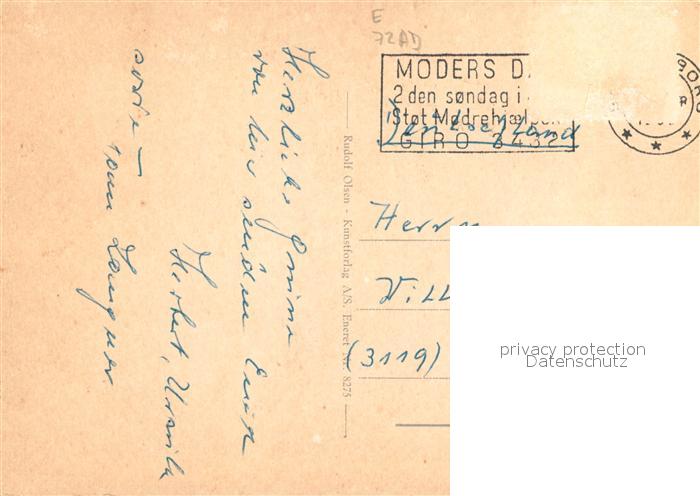 E
72AD
MODERS D
2 den søndag i
Støt Mødrehjælpen
GIRO
Deutschland
Herrn
Vill
(3119)
Rudolf Olsen - Kunstforlag A/S. Eneret Nr. 8275
Herzliche Grüsse
von hier senden Euch
Herbert, Ursula
sowie —
privacy protection
Datenschutz